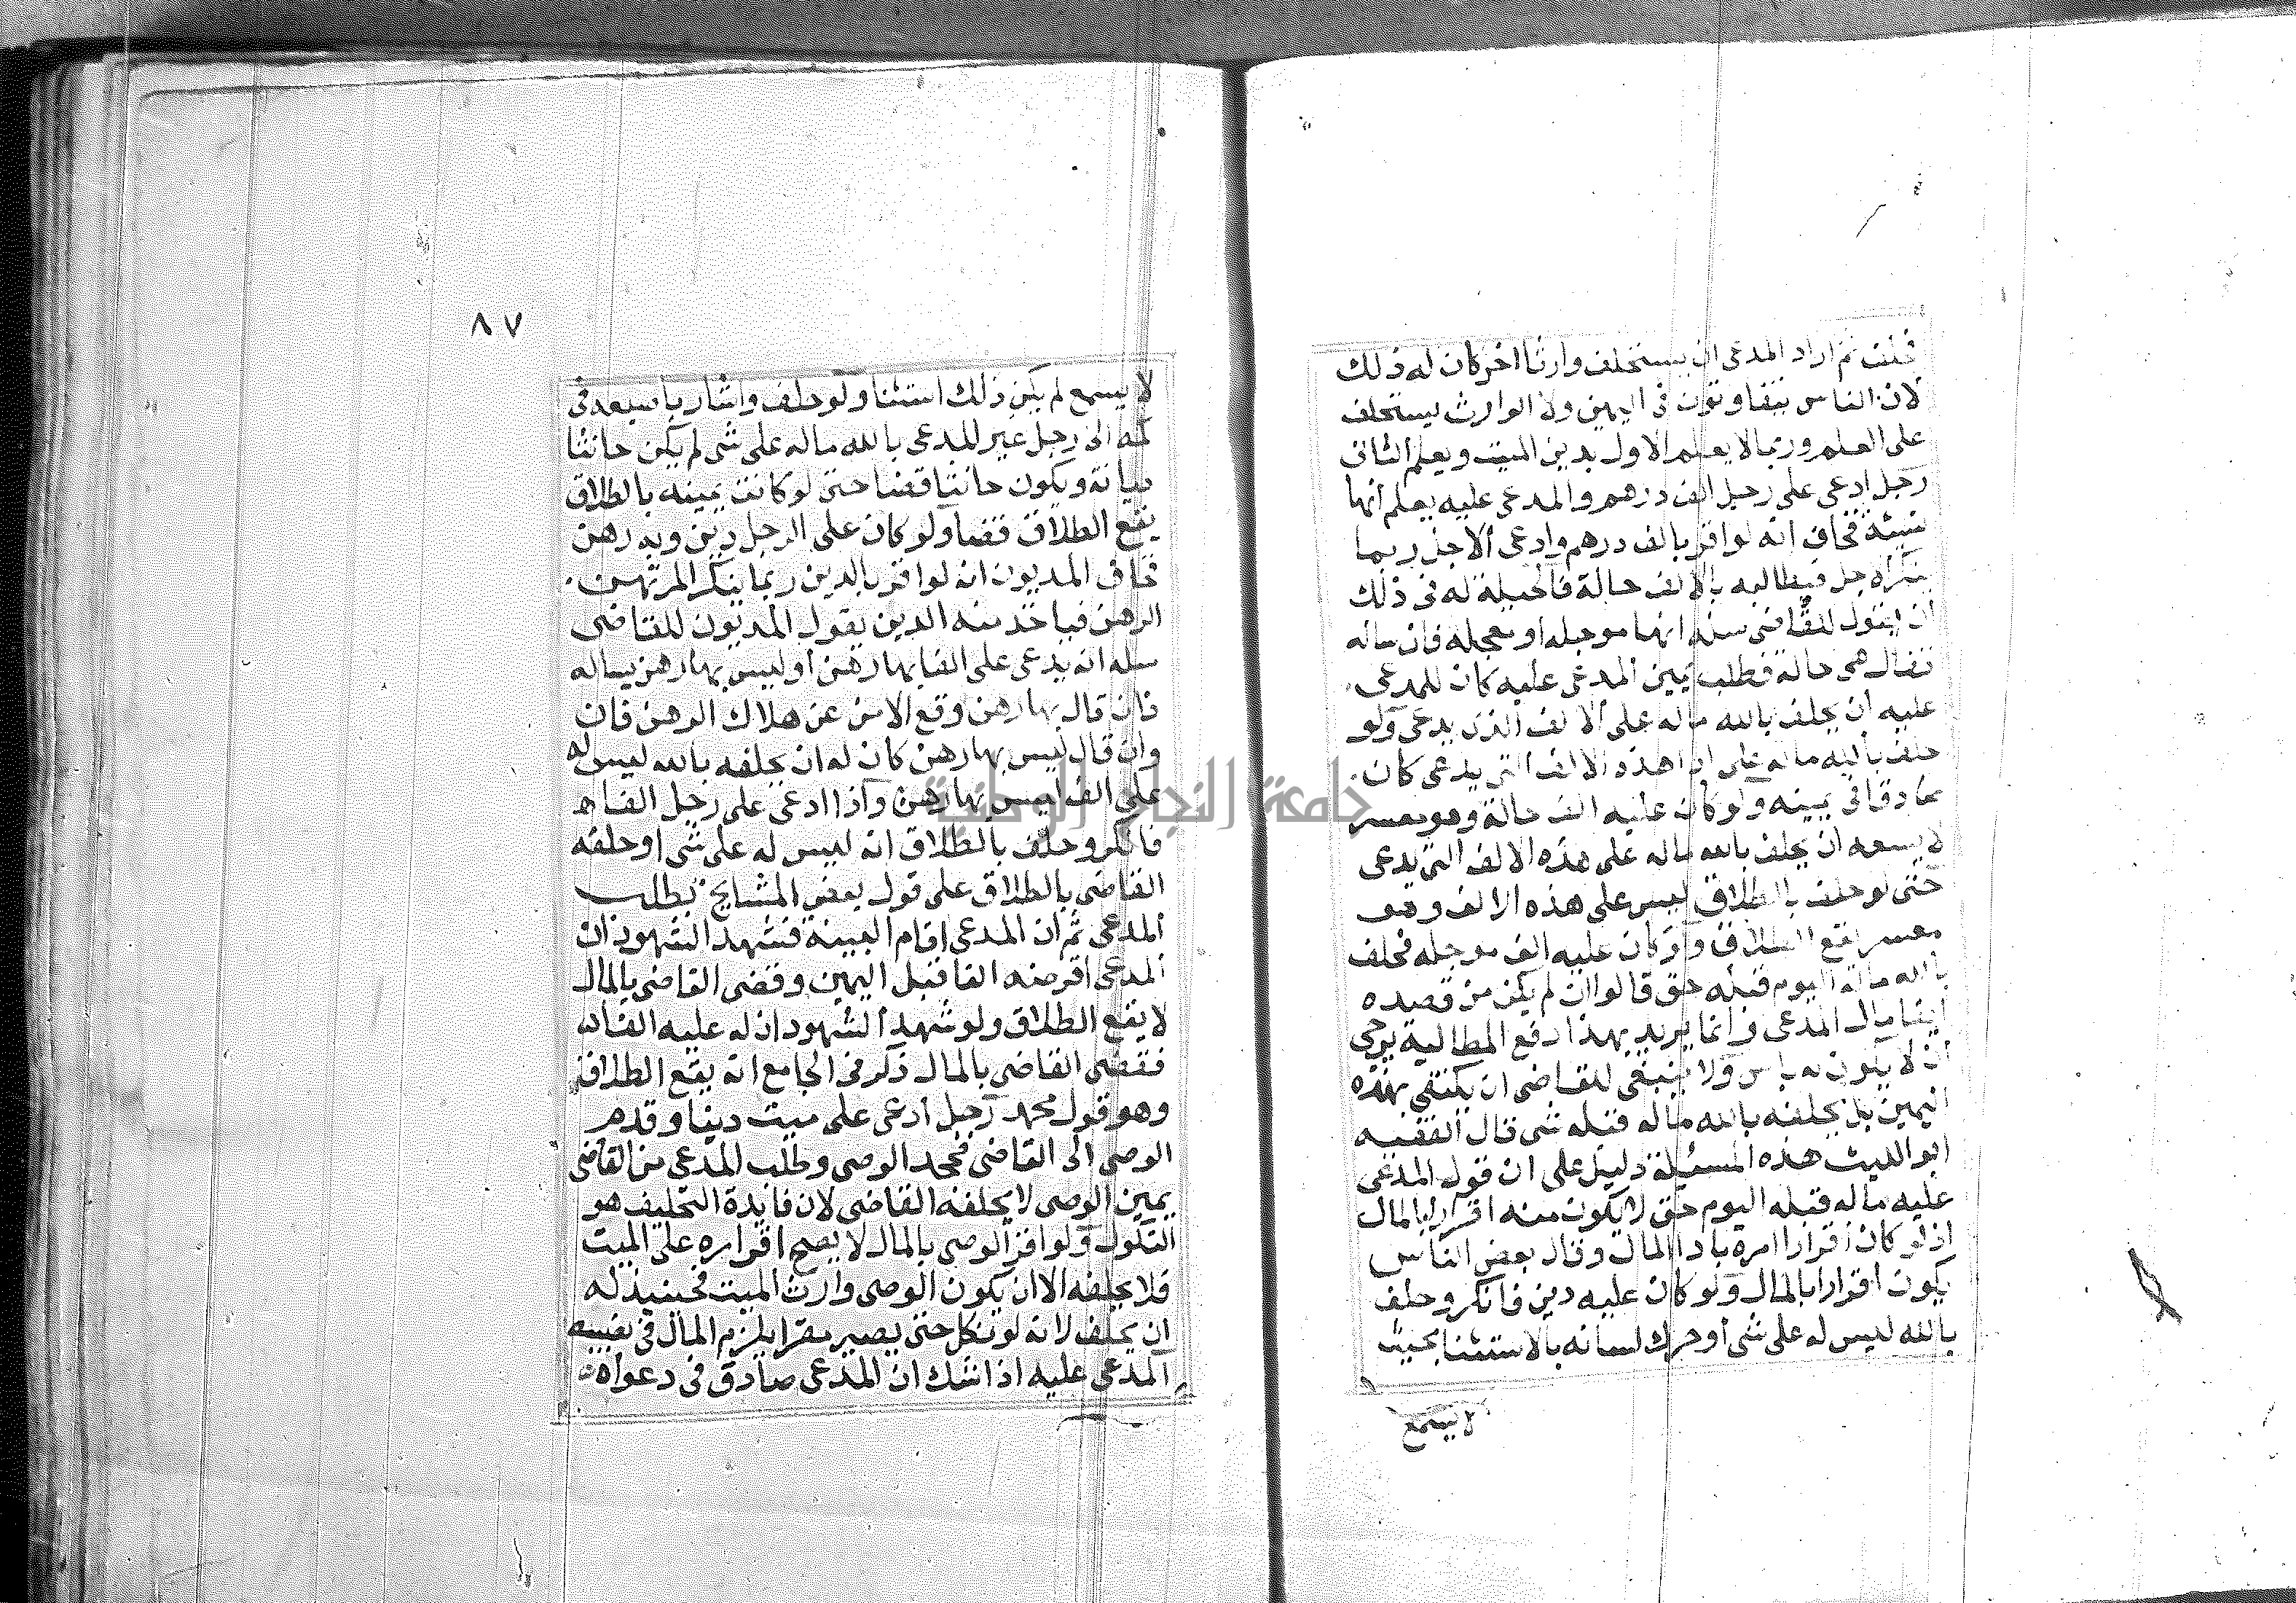 فحلف ثم اراد المدعى ان يستحلف وارثا اخر كان له ذلك
لان الناس يتفاوتون فى اليمين ولان الوارث يستحلف
على العلم وربما لا يعلم الاول بدين الميت ويعلم الثانى
رجل ادعى على رجل الف درهم والمدعى عليه يعلم انها
نسيئة فخاف انه لو اقر بالف درهم وادعى الاجل ربما
فيطالبه بالالف حالة فالحيلة له فى ذلك
ان يقول للقاضى سله انها موجله او معجله فان ساله
فقال هى حالة فطلب يمين المدعى عليه كان للمدعى
عليه ان يحلف بالله ماله على الالف الذى يدعى ولو
حلف بالله ماله على اداء هذه الالف التى يدعى كان
صادقا فى يمينه ولو كان عليه الف حالة وهو معسر
لا يسعه ان يحلف بالله ماله على هذه الالف التى يدعى
حتى لو حلف بالطلاق ليس على هذه الالف وهو
معسر يقع الطلاق ولو كان عليه الف موجله فحلف
بالله ماله اليوم قبله حق قالوا ان لم يكن من قصده
اتفا مال المدعى وانما يريد بهذا دفع المطالبة يرجى
ان لا يكون به باس ولا ينبغى للقاضى ان يكتفى بهذه
اليمين بل يحلفه بالله ماله قبله شى قال الفقيه
ابو الليث هذه المسئلة دليل على ان قول المدعى
عليه ماله قبله اليوم حتى لا يكون منه اقرارا بالمال
اذ لو كان اقرارا امره بادا المال وقال بعض الناس
يكون اقرارا بالمال ولو كان عليه دين فانكر وحلف
بالله ليس له على شى او حرك لسانه بالاستثنا بحيث
لا يسمع
٨٧
لا يسمع لم يكن ذلك استثنا ولو حلف واشار باصبعه فى
كمه الى رجل غير المدعى بالله ماله على شى لم يكن حانثا
ديانة ويكون حانثا قضا حتى لو كانت يمينه بالطلاق
يقع الطلاق قضا ولو كان على الرجل دين وبه رهن
فخاف المديون انه لو اقر بالدين ربما ينكر المرتهن
الرهن فياخذ منه الدين يقول المديون للقاضى
سله انه يدعى على الفا بها رهن او ليس بها رهن يساله
فان قال بها رهن وقع الامن عن هلاك الرهن فان
وان قال ليس بها رهن كان له ان يحلفه بالله ليس له
على الف ليس بها رهن واذا ادعى على رجل الفا
فانكر وحلف بالطلاق انه ليس له على شى او حلفه
القاضى بالطلاق على قول بعض المشايخ بطلب
المدعى ثم ان المدعى اقام البينة فشهد الشهود ان
المدعى اقرضه الفا قبل اليمين وقضى القاضى بالمال
لا يقع الطلاق ولو شهد الشهود ان له عليه الفا
فقضى القاضى بالمال ذكر فى الجامع انه يقع الطلاق
وهو قول محمد رجل ادعى على ميت دينا وقدم
الوصى الى القاضى فجحد الوصى وطلب المدعى من القاضى
يمين الوصى لا يحلفه القاضى لان فايدة التحليف هو
النكول ولو اقر الوصى بالمال لا يصح اقراره على الميت
فلا يحلفه الا ان يكون الوصى وارث الميت فحينيذ له
ان يحلف لانه لو نكل حتى يصير مقرا يلزم المال فى نصيبه
المدعى عليه اذا شك ان المدعى صادق فى دعواه
جامعة النجاح الوطنية